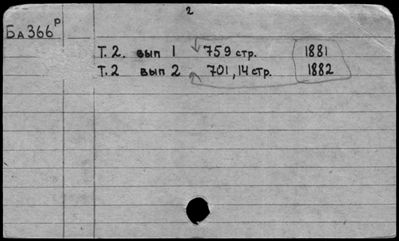 2
Ба366ᴾ
Т.2. вып 1 759 стр. 1881
Т.2 вып 2 701, 14 стр. 1882